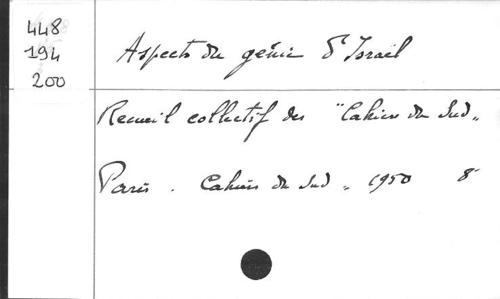 448
194
200
Aspects du génie d'Israël
Recueil collectif des "Cahiers du Sud"
Paris. Cahiers du Sud, 1950 8°